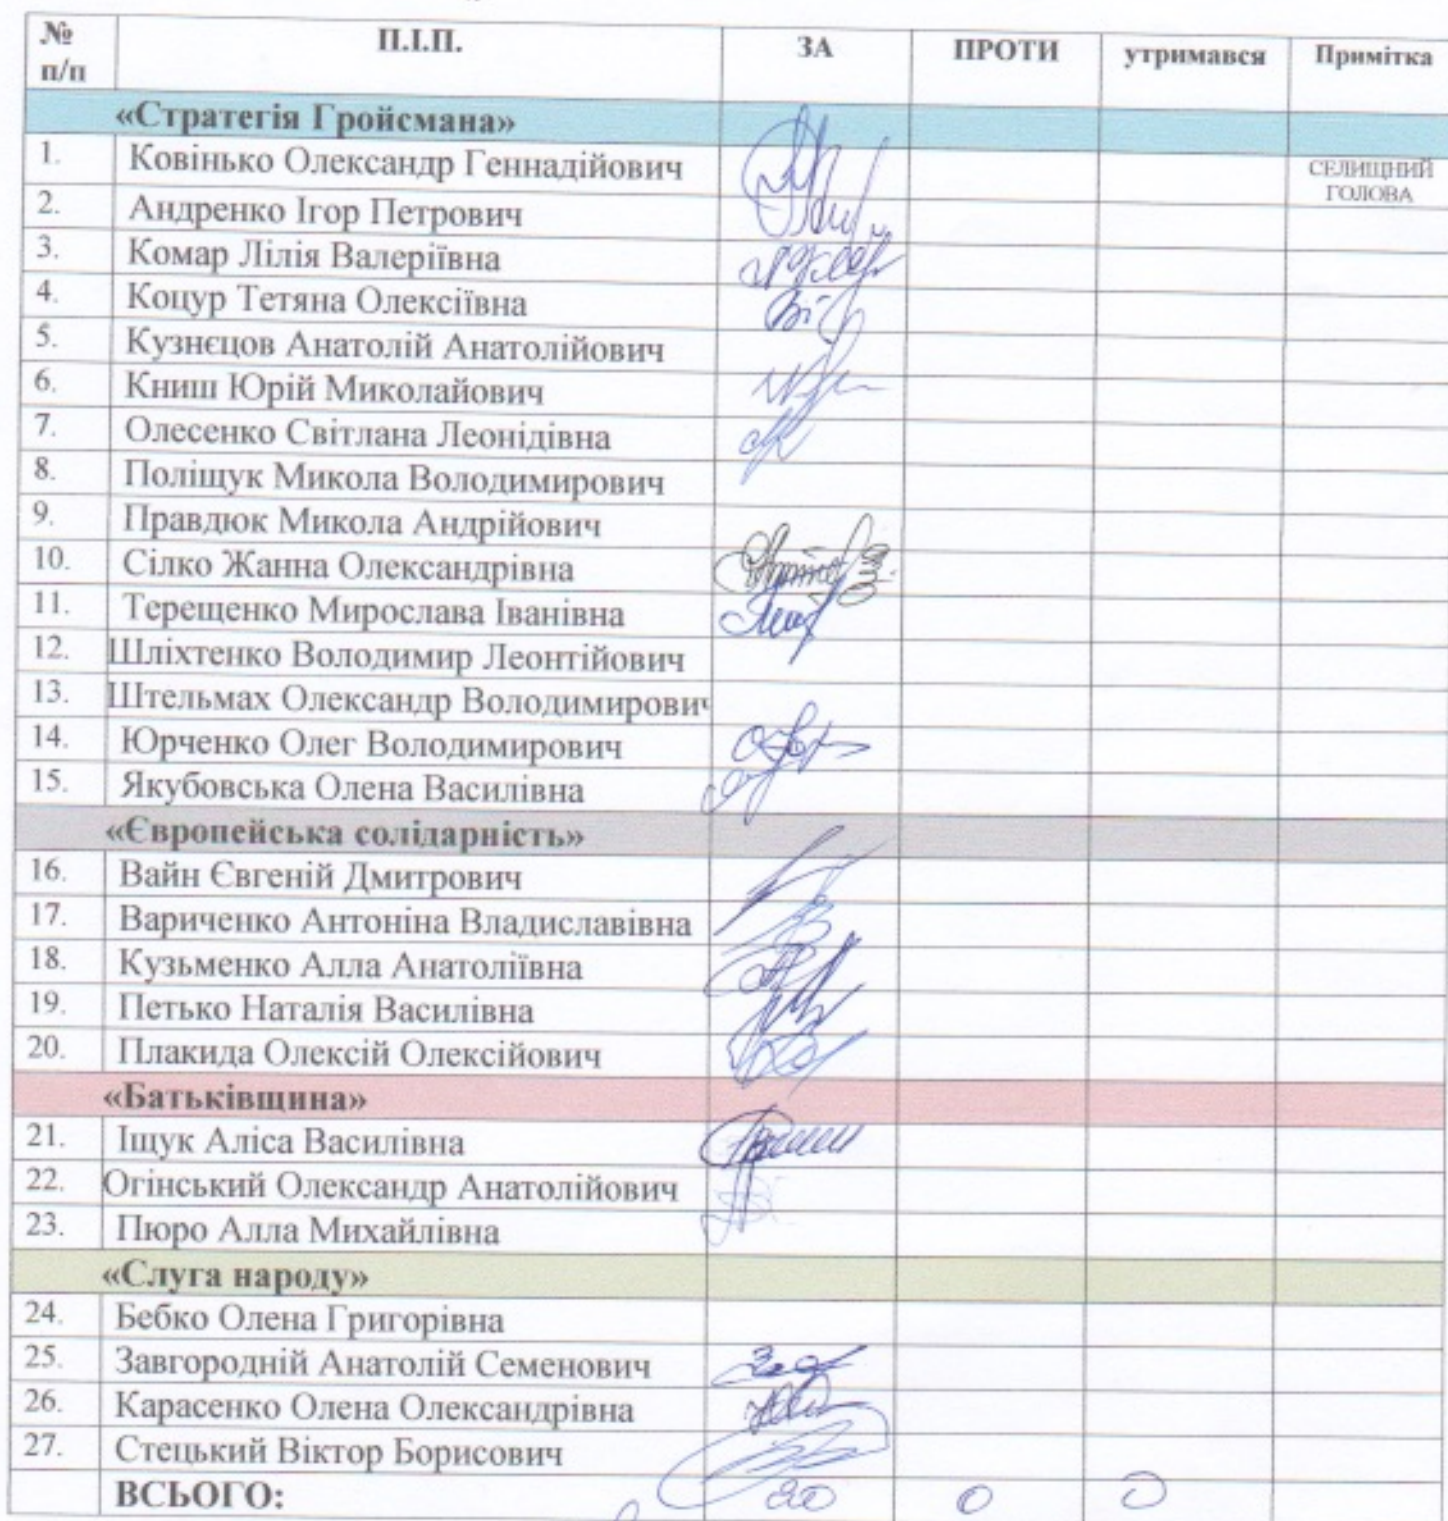 № п/п П.І.П. ЗА ПРОТИ утримався Примітка
«Стратегія Гройсмана»
1. Ковінько Олександр Геннадійович СЕЛИЩНИЙ ГОЛОВА
2. Андренко Ігор Петрович
3. Комар Лілія Валеріївна
4. Коцур Тетяна Олексіївна
5. Кузнєцов Анатолій Анатолійович
6. Книш Юрій Миколайович
7. Олесенко Світлана Леонідівна
8. Поліщук Микола Володимирович
9. Правдюк Микола Андрійович
10. Сілко Жанна Олександрівна
11. Терещенко Мирослава Іванівна
12. Шліхтенко Володимир Леонтійович
13. Штельмах Олександр Володимирович
14. Юрченко Олег Володимирович
15. Якубовська Олена Василівна
«Європейська солідарність»
16. Вайн Євгеній Дмитрович
17. Вариченко Антоніна Владиславівна
18. Кузьменко Алла Анатоліївна
19. Петько Наталія Василівна
20. Плакида Олексій Олексійович
«Батьківщина»
21. Іщук Аліса Василівна
22. Огінський Олександр Анатолійович
23. Пюро Алла Михайлівна
«Слуга народу»
24. Бебко Олена Григорівна
25. Завгородній Анатолій Семенович
26. Карасенко Олена Олександрівна
27. Стецький Віктор Борисович
ВСЬОГО: 20 0 0